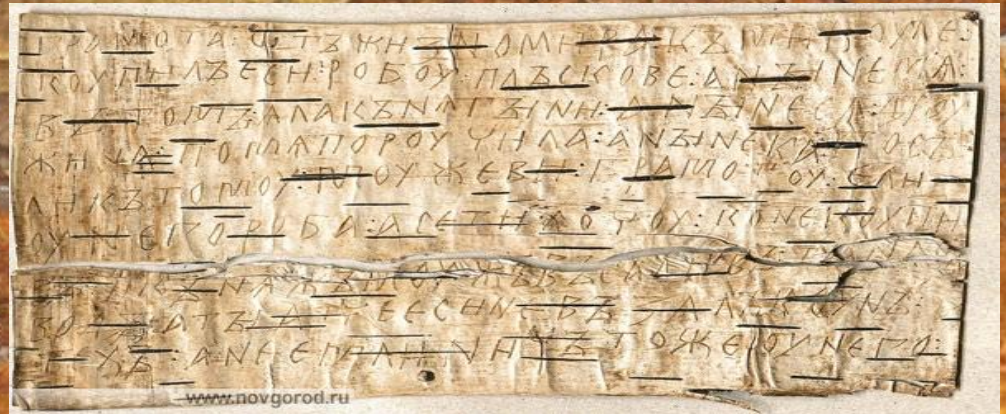 ГРАМОТА : ѠТЪ ЖИЗНОМИРА : КЪ МИКОУЛЕ :
КОУПИЛЪ ЕСИ : РОБОУ : ПЛЪСКОВЕ : А НЪІНЕ МѦ :
ВЪ ТОМЪ : ѦЛА КЪНѦГЪІНИ : А НЪІНЕ СѦ ДРОУ
ЖИНА : ПО МѦ ПОРОУЧИЛА : А НЪІНЕ КА : ПОСЪ
ЛИ КЪ ТОМОУ : МОУЖЕВИ : ГРАМОТОУ : ЕЛИ
ОУ НЕГО РОБА : А СЕ ТИ ХОЧОУ : КОНЕ КОУПИ
КЪНѦЖЪ МОУЖЪ ВЪСА
ЕСИ НЕ ВЪЗАЛЪ КОУНЪ :
ТЕХЪ : А НЕ ЕМЛИ : НИЧЪТО ЖЕ ОУ НЕГО :
www.novgorod.ru